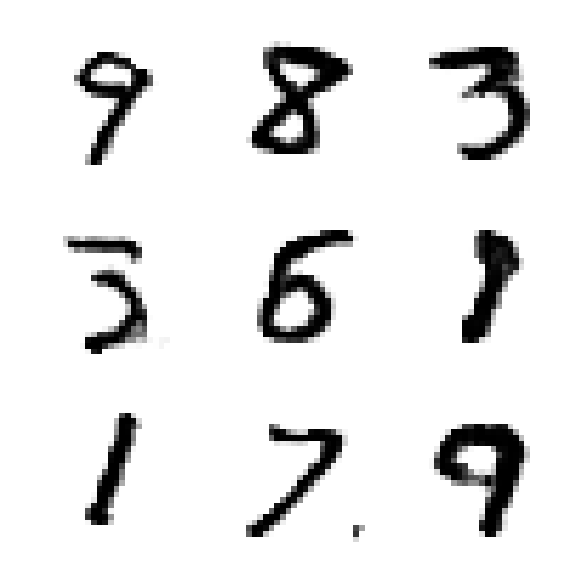 9 8 3
3 6 1
1 7 9